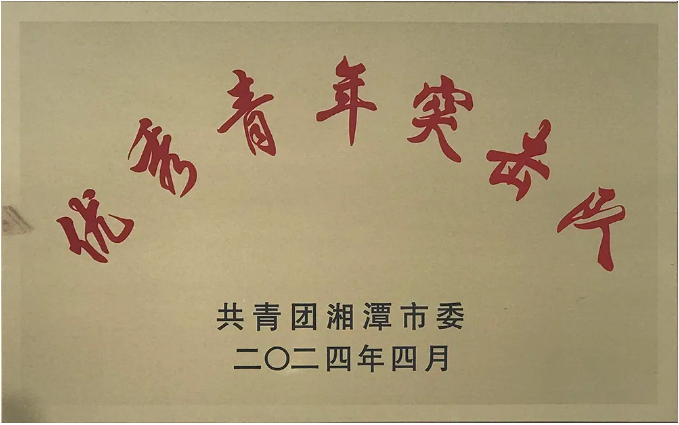 优秀青年突击队
共青团湘潭市委
二〇二四年四月